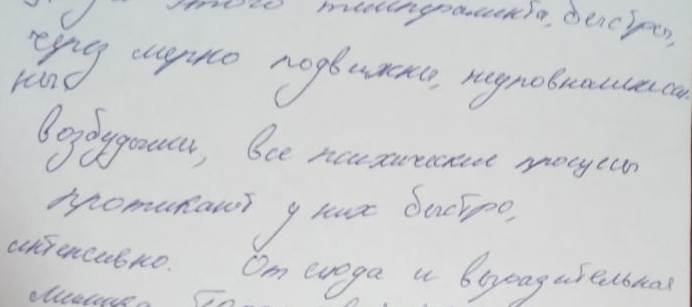 этого темперамента, быстры,
через мерно подвижны, неуравновешен
ны
возбудимы, все психические процессы
протикают у них быстро,
интенсивно. От сюда и выразительная
мимика